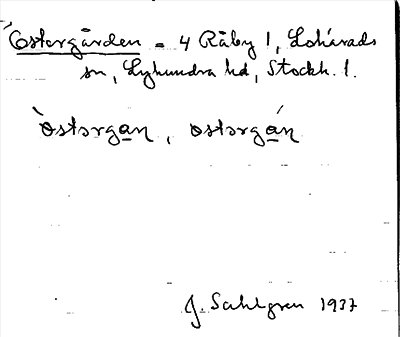 Östergården = 4 Råby 1, Lohärads
sn, Lyhundra hd, Stockh. l.
òstərga̲n, ostərgá̲n
J. Sahlgren 1937